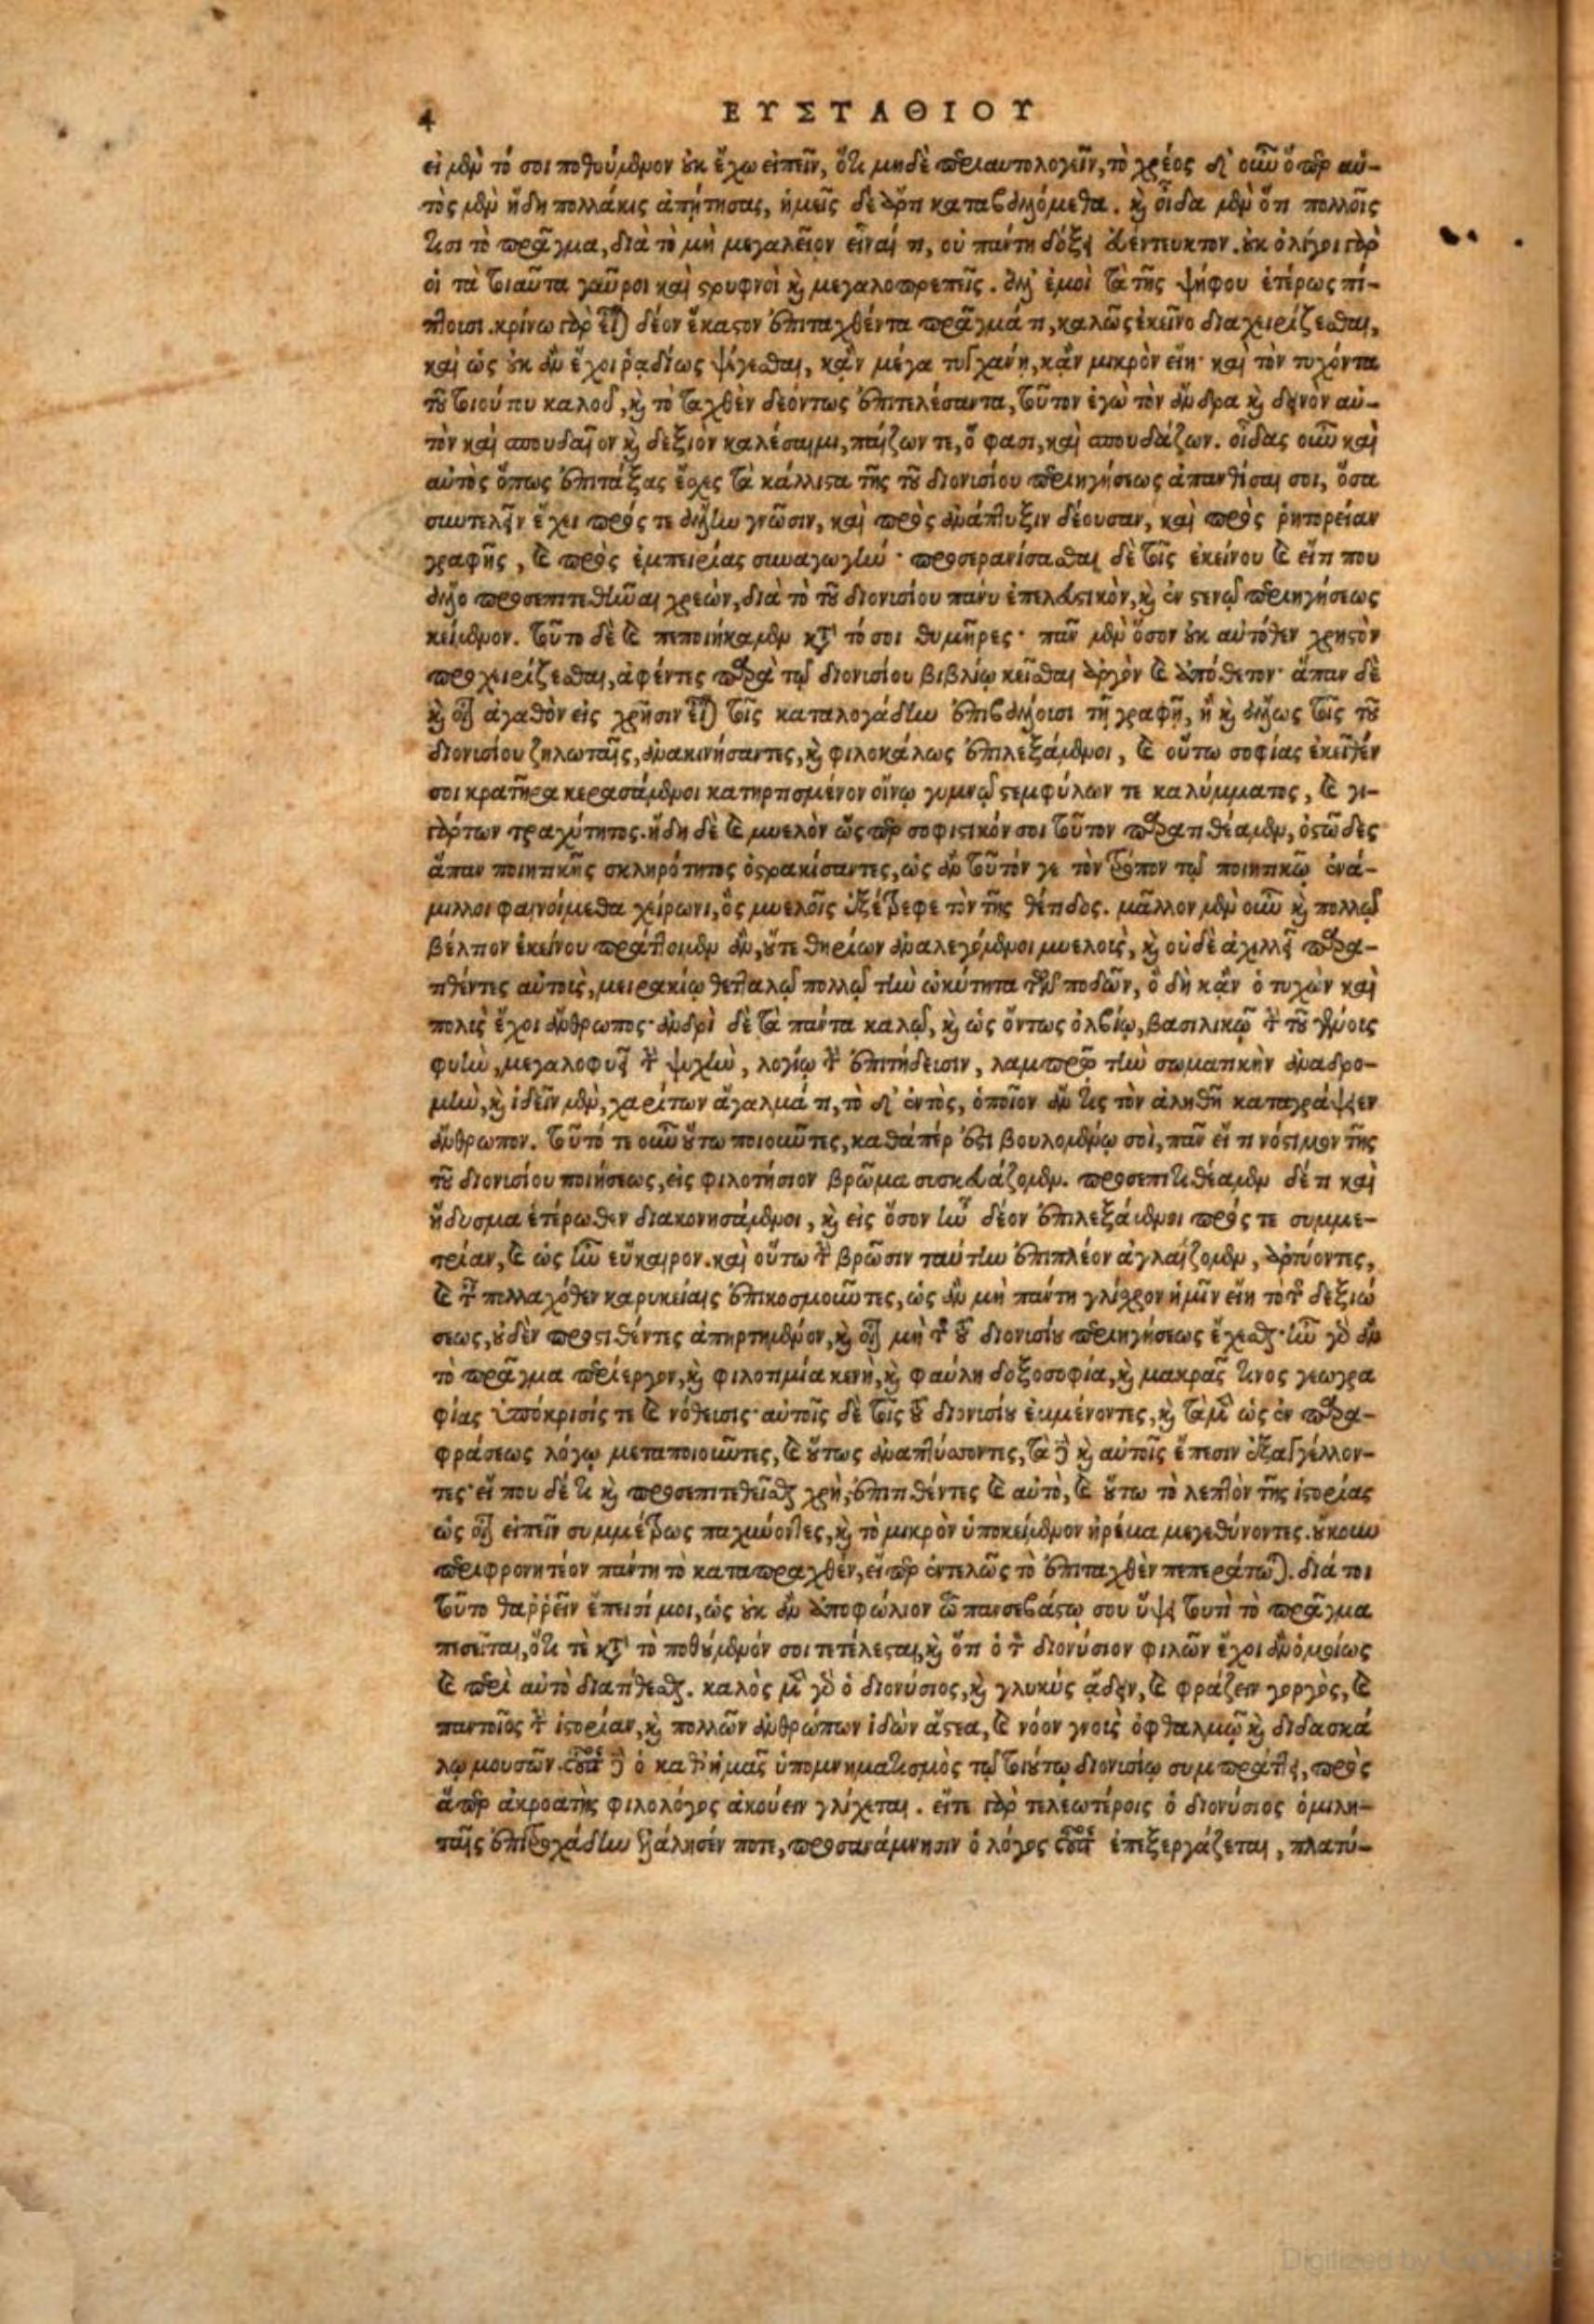 4 ΕΥΣΤΑΘΙΟΥ
εἰ μὲν τό σοι ποθούμενον οὐκ ἔχω εἰπεῖν, ὅτι μηδὲ περιαυτολογεῖν, τὸ χρέος δ' οὖν ὅπερ αὐ-
τὸς μὲν ἤδη πολλάκις ἀπῄτησας, ἡμεῖς δὲ ἄρτι καταβαλλόμεθα. καὶ οἶδα μὲν ὅτι πολλοῖς
τισι τὸ πρᾶγμα, διὰ τὸ μὴ μεγαλεῖον εἶναί τι, οὐ πάντη δόξει εὐέντευκτον. οὐκ ὀλίγοι γὰρ
οἱ τὰ τοιαῦτα γαῦροι καὶ στρυφνοὶ καὶ μεγαλοπρεπεῖς. ἀλλ' ἐμοὶ τὰ τῆς ψήφου ἑτέρως πί-
πτουσι. κρίνω γὰρ εἶναι δέον ἕκαστον ἐπιταχθέντα πρᾶγμά τι, καλῶς ἐκεῖνο διαχειρίζεσθαι,
καὶ ὡς οὐκ ἂν ἔχοι ῥᾳδίως ψέγεσθαι, κἂν μέγα τυγχάνῃ, κἂν μικρὸν εἴη· καὶ τὸν τυχόντα
τοῦ τοιούτου καλοῦ, καὶ τὸ ταχθὲν δεόντως ἐπιτελέσαντα, τοῦτον ἐγὼ τὸν ἄνδρα καὶ δεινὸν αὐ-
τὸν καὶ σπουδαῖον καὶ δεξιὸν καλέσαιμι, παίζων τε, ὅ φασι, καὶ σπουδάζων. οἶδας οὖν καὶ
αὐτὸς ὅπως ἐπιτάξας ἔχεις τὰ κάλλιστα τῆς τοῦ διονυσίου περιηγήσεως ἀπανθίσαι σοι, ὅσα
συντελεῖν ἔχει πρός τε ἄλλην γνῶσιν, καὶ πρὸς ἀνάπτυξιν δέουσαν, καὶ πρὸς ῥητορείαν
γραφῆς, καὶ πρὸς ἐμπειρίας συναγωγήν· προσερανίσασθαι δὲ τοῖς ἐκείνου καὶ εἴ τι που
ἄλλο προσεπιτεθῆναι χρεὼν, διὰ τὸ τοῦ διονυσίου πάνυ ἐπελευστικὸν, καὶ ἐν στενῷ περιηγήσεως
κείμενον. τοῦτο δὲ καὶ πεποιήκαμεν κατὰ τό σοι θυμῆρες· πᾶν μὲν ὅσον οὐκ αὐτόθεν χρηστὸν
προχειρίζεσθαι, ἀφέντες παρὰ τῷ διονυσίου βιβλίῳ κεῖσθαι ἀργὸν καὶ ἀπόθετον· ἅπαν δὲ
διονυσίου ζηλωταῖς, ἀνακινήσαντες, καὶ φιλοκάλως ἐπιλεξάμενοι, καὶ οὕτω σοφίας ἐκεῖθέν
σοι κρατῆρα κερασάμενοι κατηρτισμένον οἴνῳ γυμνῷ στεμφύλων τε καλύμματος, καὶ γι-
γάρτων τραχύτητος. ἤδη δὲ καὶ μυελὸν ὥσπερ σοφιστικόν σοι τοῦτον παρατιθέαμεν, ὀστῶδες
ἅπαν ποιητικῆς σκληρότητος ὀστρακίσαντες, ὡς ἂν τοῦτόν γε τὸν τρόπον τῷ ποιητικῷ ἐνά-
μιλλοι φαινοίμεθα χείρωνι, ὃς μυελοῖς ἐξέτρεφε τὸν τῆς θέτιδος. μᾶλλον μὲν οὖν καὶ πολλῷ
βέλτιον ἐκείνου πράττοιμεν ἂν, οὔτε θηρίων ἀναλεγόμενοι μυελοὺς, καὶ οὐδὲ ἀχιλλεῖ παρα-
τιθέντες αὐτοὺς, μειρακίῳ θετταλῷ πολλῷ τὴν ὠκύτητα τῶν ποδῶν, ὃ δὴ κἂν ὁ τυχὼν καὶ
πολὺς ἔχοι ἄνθρωπος· ἀνδρὶ δὲ τὰ πάντα καλῷ, καὶ ὡς ὄντως ὀλβίῳ, βασιλικῷ τὴν τοῦ γένους
φυὴν, μεγαλοφυεῖ τὴν ψυχὴν, λογίῳ τὴν ἐπιτήδευσιν, λαμπρῷ τὴν σωματικὴν ἀναδρο-
μὴν, καὶ ἰδεῖν μὲν, χαρίτων ἄγαλμά τι, τὸ δ' ἐντὸς, ὁποῖον ἄν τις τὸν ἀληθῆ καταγράψειεν
ἄνθρωπον. τοῦτό τε οὖν οὕτω ποιοῦντες, καθάπερ ἐστὶ βουλομένῳ σοὶ, πᾶν εἴ τι νόστιμον τῆς
τοῦ διονυσίου ποιήσεως, εἰς φιλοτήσιον βρῶμα συσκευάζομεν. προσεπιτιθέαμεν δέ τι καὶ
ἥδυσμα ἑτέρωθεν διακονησάμενοι, καὶ εἰς ὅσον ἦν δέον ἐπιλεξάμενοι πρός τε συμμε-
τρίαν, καὶ ὡς ἦν εὔκαιρον. καὶ οὕτω τὴν βρῶσιν ταύτην ἐπιπλέον ἀγλαΐζομεν, ἀρτύοντες,
καὶ ταῖς πολλαχόθεν καρυκείαις ἐπικοσμοῦντες, ὡς ἂν μὴ πάντη γλίσχρον ἡμῖν εἴη τὸ τῆς δεξιώ
σεως, οὐδὲν προστιθέντες ἀπηρτημένον, καὶ οἷον μὴ τῆς τοῦ διονυσίου περιηγήσεως ἔχεσθαι· ἦν γὰρ ἂν
τὸ πρᾶγμα περίεργον, καὶ φιλοτιμία κενὴ, καὶ φαύλη δοξοσοφία, καὶ μακρᾶς τινος γεωγρα
φίας ὑπόκρισίς τε καὶ νόθευσις· αὐτοῖς δὲ τοῖς τοῦ διονυσίου ἐμμένοντες, καὶ τὰ μὲν ὡς ἐν παρα-
φράσεως λόγῳ μεταποιοῦντες, καὶ οὕτως ἀναπτύσσοντες, τὰ δὲ καὶ αὐτοῖς ἔπεσιν ἐξαγγέλλον-
τες· εἴ που δέ τι καὶ προσεπιτεθεῖσθαι χρὴ, ἐπιτιθέντες καὶ αὐτὸ, καὶ οὕτω τὸ λεπτὸν τῆς ἱστορίας
ὡς οἷον εἰπεῖν συμμέτρως παχύνοντες, καὶ τὸ μικρὸν ὑποκείμενον ἠρέμα μεγεθύνοντες. οὔκουν
περιφρονητέον πάντη τὸ καταπραχθέν, εἴπερ ἐντελῶς τὸ ἐπιταχθὲν πεπεράτωται. διά τοι
τοῦτο θαῤῥεῖν ἔπεισί μοι, ὡς οὐκ ἂν ἀποφώλιον ὦ πανσέβαστέ σου ὕψει τουτὶ τὸ πρᾶγμα
καὶ περὶ αὐτὸ διατίθεσθαι. καλὸς μὲν γὰρ ὁ διονύσιος, καὶ γλυκὺς ᾄδειν, καὶ φράζειν γοργὸς, καὶ
παντοῖος τὴν ἱστορίαν, καὶ πολλῶν ἀνθρώπων ἰδὼν ἄστεα, καὶ νόον γνοὺς ὀφθαλμῷ καὶ διδασκά
λῳ μουσῶν. δὲ ὁ καθ' ἡμᾶς ὑπομνηματισμὸς τῷ τοιούτῳ διονυσίῳ συμπράττει, πρὸς
ἅπερ ἀκροατὴς φιλολόγος ἀκούειν γλίχεται. εἴτε γὰρ τελεωτέροις ὁ διονύσιος ὁμιλη-
ταῖς ἐπιτροχάδην ἐλάλησέν ποτε, πρὸς ἀνάμνησιν ὁ λόγος ἐπεξεργάζεται, πλατύ-